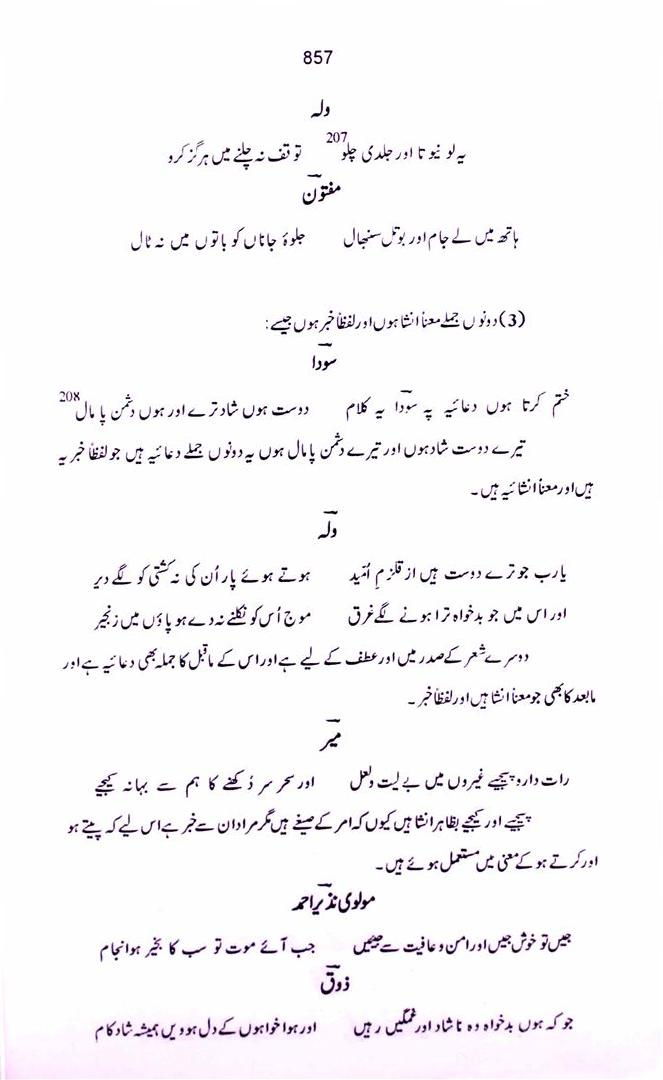 857
ولہ
یہ لو نیوتا اور جلدی چلو207 توقف نہ چلنے میں ہرگز کرو
مفتون
ہاتھ میں لے جام اور بوتل سنبھال جلوۂ جاناں کو باتوں میں نہ ٹال
(3) دونوں جملے معناً انشا ہوں اور لفظاً خبر ہوں جیسے:
سودا
ختم کرتا ہوں دعائیہ پہ سودا یہ کلام دوست ہوں شاد ترے اور ہوں دشمن پامال208
تیرے دوست شاد ہوں اور تیرے دشمن پامال ہوں یہ دونوں جملے دعائیہ ہیں جو لفظاً خبریہ
ہیں اور معناً انشائیہ ہیں۔
ولہ
یارب جو ترے دوست ہیں از قلزمِ اُمّید ہوتے ہوئے پار اُن کی نہ کشتی کو لگے دیر
اور اس میں جو بدخواہ ترا ہونے لگے غرق موج اُس کو نکلنے نہ دے ہو پاؤں میں زنجیر
دوسرے شعر کے صدر میں اور عطف کے لیے ہے اور اس کے ماقبل کا جملہ بھی دعائیہ ہے اور
مابعد کا بھی جو معناً انشا ہیں اور لفظاً خبر۔
میر
رات دارو پیجیے غیروں میں بے لیت و لعل اور سحر سر دُکھنے کا ہم سے بہانہ کیجیے
پیجیے اور کیجیے بظاہر انشا ہیں کیوں کہ امر کے صیغے ہیں مگر مراد ان سے خبر ہے اس لیے کہ پیتے ہو
اور کرتے ہو کے معنی میں مستعمل ہوئے ہیں۔
مولوی نذیر احمد
جیں تو خوش جیں اور امن و عافیت سے جییں جب آئے موت تو سب کا بخیر ہو انجام
ذوق
جو کہ ہوں بدخواہ وہ ناشاد اور غمگیں رہیں اور ہوا خواہوں کے دل ہوویں ہمیشہ شادکام